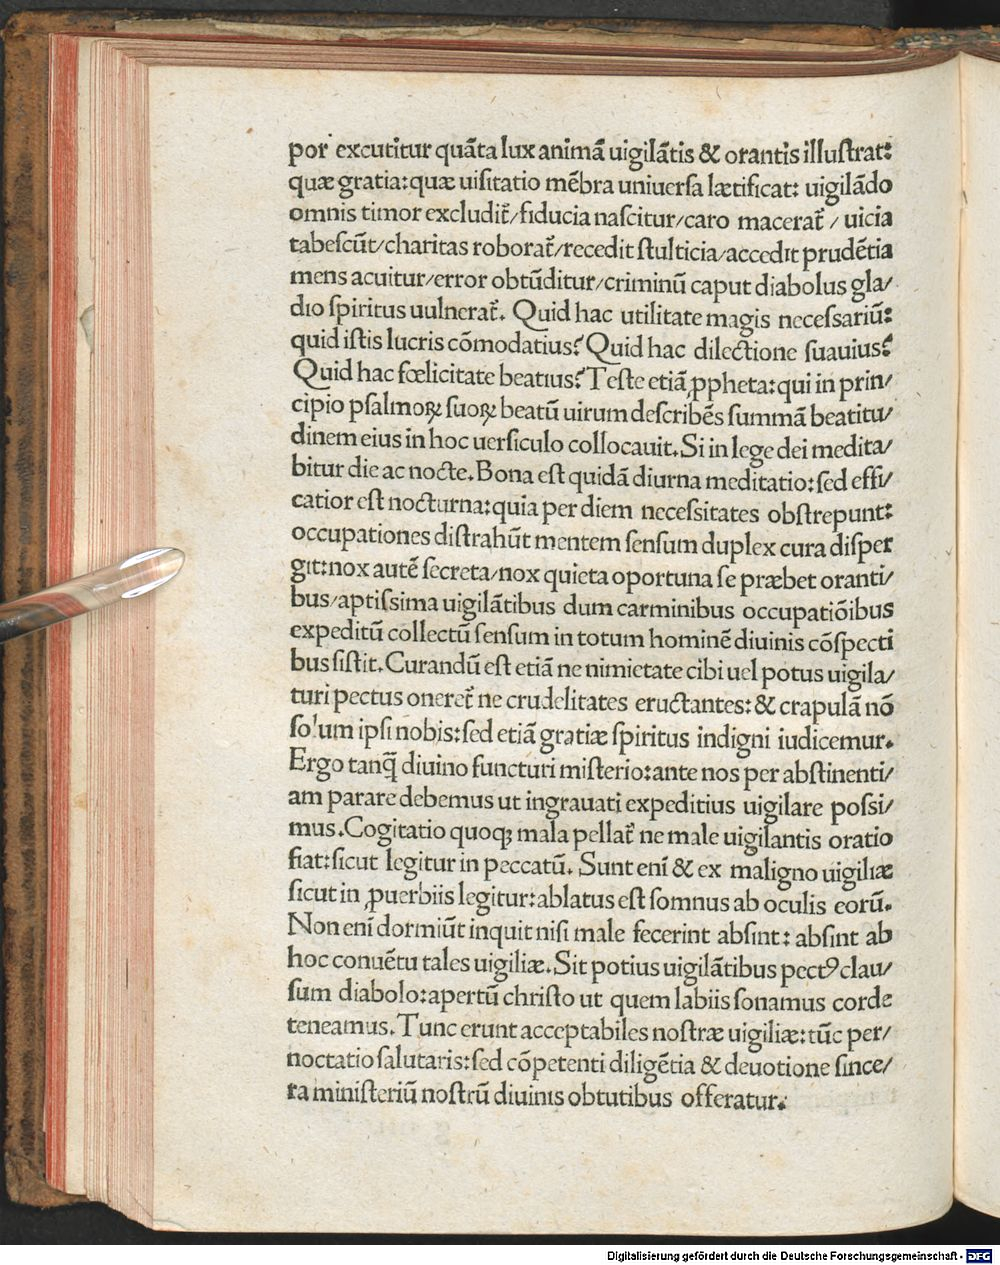 por excutitur quãta lux animã uigilãtis & orantis illuſtrat:
quæ gratia:quæ uiſitatio mẽbra uniuerſa lætificat: uigilãdo
omnis timor excludit̃/fiducia naſcitur/caro macerat̃ / uicia
tabeſcũt/charitas roborat̃/recedit ſtulticia/accedit prudẽtia
mens acuitur/error obtũditur/criminũ caput diabolus gla/
dio ſpiritus uulnerat̃. Quid hac utilitate magis neceſſariũ:
quid iſtis lucris cõmodatius? Quid hac dilectione ſuauius?
Quid hac fœlicitate beatius? Teſte etiã ꝓpheta:qui in prin/
cipio pſalmoꝝ ſuoꝝ beatũ uirum deſcribẽs ſummã beatitu/
dinem eius in hoc uerſiculo collocauit. Si in lege dei medita/
bitur die ac nocte. Bona eſt quidã diurna meditatio: ſed effi/
catior eſt nocturna:quia per diem neceſſitates obſtrepunt:
occupationes diſtrahũt mentem ſenſum duplex cura diſper
git:nox autẽ ſecreta/nox quieta oportuna ſe præbet oranti/
bus/aptiſſima uigilãtibus dum carminibus occupatiõibus
expeditũ collectũ ſenſum in totum hominẽ diuinis cõſpecti
bus ſiſtit. Curandũ eſt etiã ne nimietate cibi uel potus uigila/
turi pectus oneret̃ ne crudelitates eructantes: & crapulã nõ
ſolum ipſi nobis:ſed etiã gratiæ ſpiritus indigni iudicemur.
Ergo tanq̃ diuino functuri miſterio:ante nos per abſtinenti/
am parare debemus ut ingrauati expeditius uigilare poſſi/
mus. Cogitatio quoqꝫ mala pellat̃ ne male uigilantis oratio
fiat:ſicut legitur in peccatũ. Sunt enĩ & ex maligno uigiliæ
ſicut in ꝓuerbiis legitur:ablatus eſt ſomnus ab oculis eorũ.
Non enĩ dormiũt inquit niſi male fecerint abſint: abſint ab
hoc conuẽtu tales uigiliæ. Sit potius uigilãtibus pectꝰ clau/
ſum diabolo:apertũ chriſto ut quem labiis ſonamus corde
teneamus. Tunc erunt acceptabiles noſtræ uigiliæ: tũc per/
noctatio ſalutaris:ſed cõpetenti diligẽtia & deuotione ſince/
ra miniſteriũ noſtrũ diuinis obtutibus offeratur.
Digitalisierung gefördert durch die Deutsche Forschungsgemeinschaft - DFG